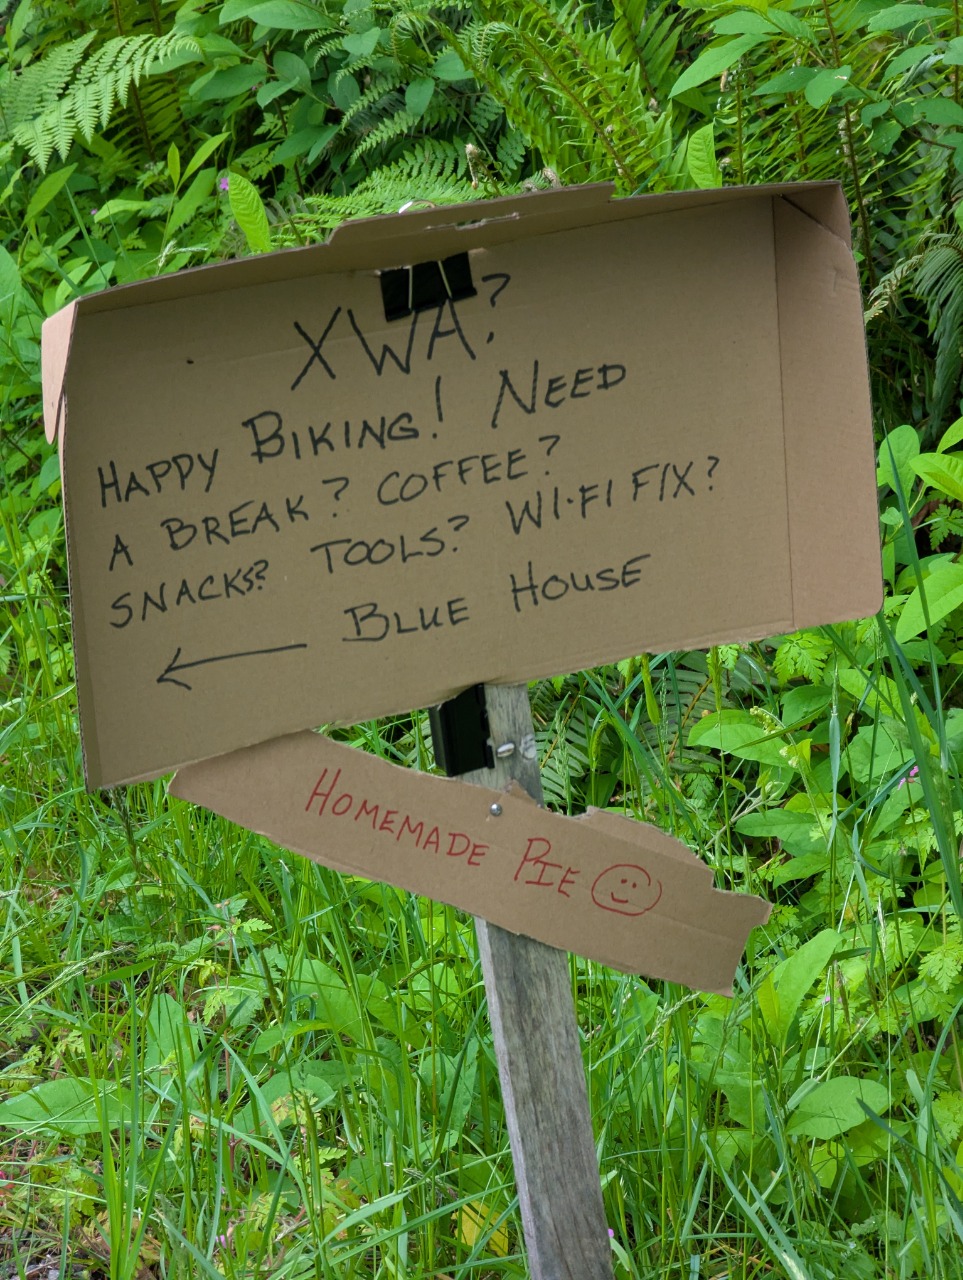 XWA?
HAPPY BIKING! NEED
A BREAK? COFFEE?
SNACKS? TOOLS? WI-FI FIX?
← BLUE HOUSE
HOMEMADE PIE ☺